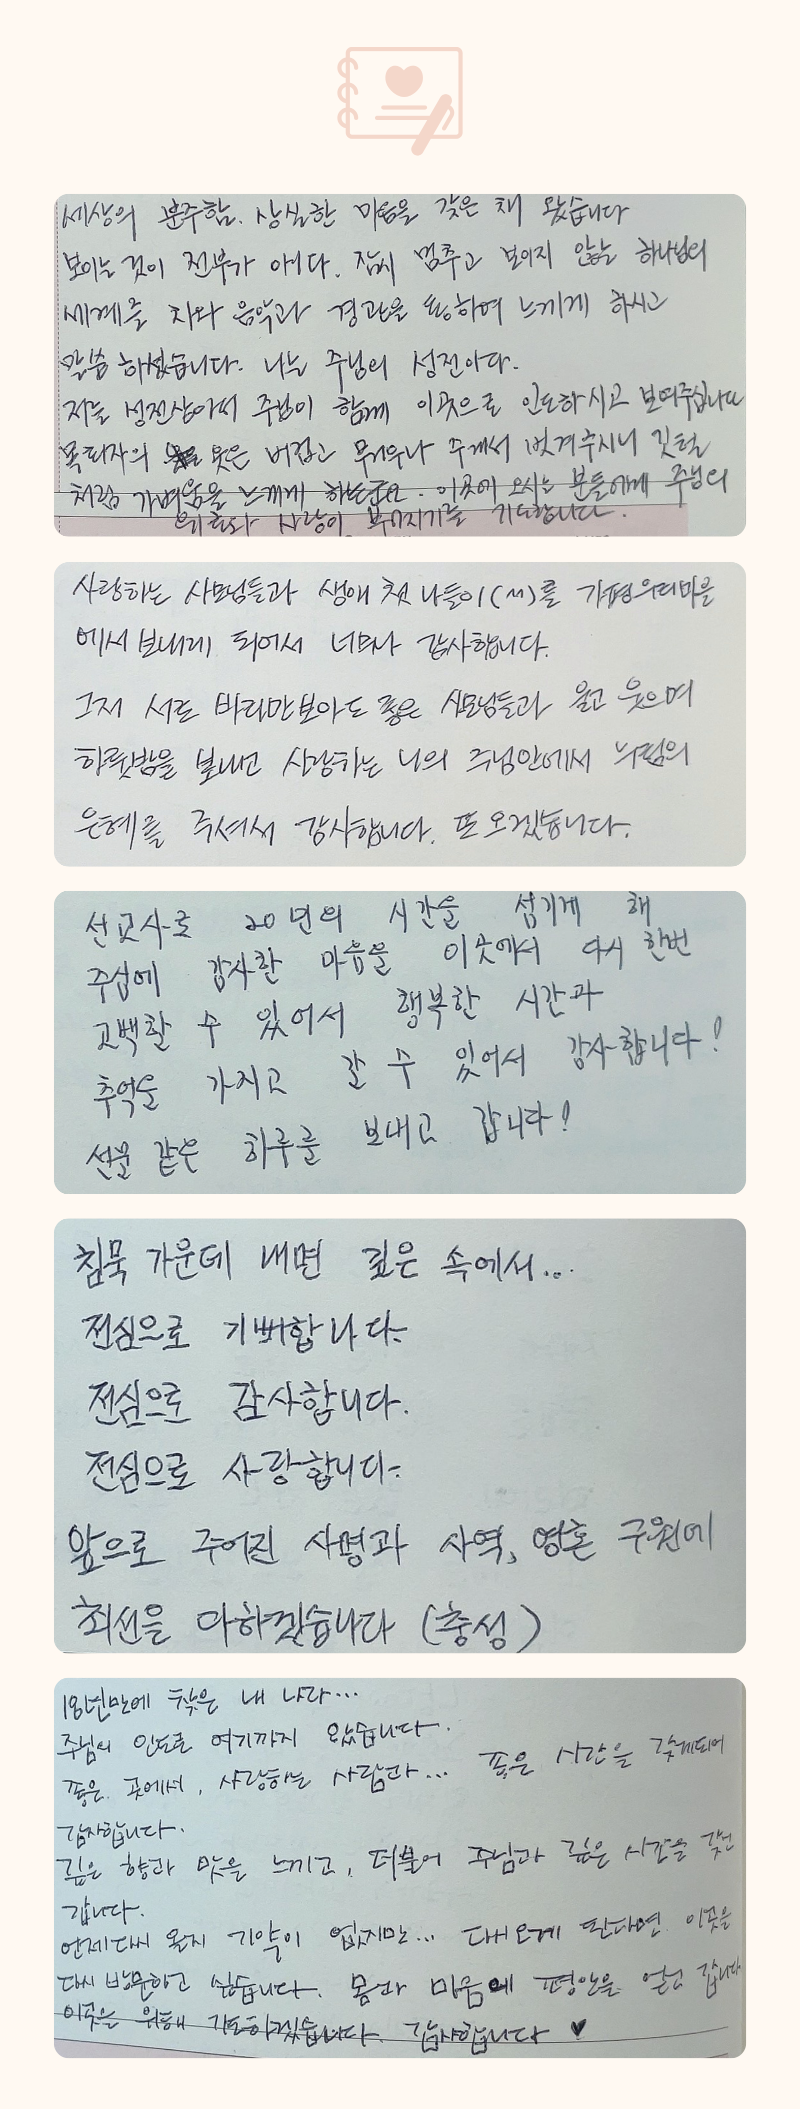 세상의 분주함. 상실한 마음을 갖은 채 왔습니다
보이는 것이 전부가 아니다. 잠시 멈추고 보이지 않는 하나님의
세계를 차와 음악과 경관을 통하여 느끼게 하시고
말씀하셨습니다. 나는 주님의 성전이다.
저는 성전삼아서 주님이 함께 이곳으로 인도하시고 보여주십니다
목회자의 옷은 버겁고 무거우나 주께서 벗겨주시니 깃털
처럼 가벼움을 느끼게 하는군요. 이곳에 오시는 분들에게 주님의
위로와 사랑이 부어지기를 기도합니다.
사랑하는 사모님들과 생애 첫 나들이(^^)를 가평우리마을
에서 보내게 되어서 너무나 감사합니다.
그저 서로 바라만보아도 좋은 사모님들과 울고 웃으며
하룻밤을 보내고 사랑하는 나의 주님안에서 누림의
은혜를 주셔서 감사합니다. 또 오겠습니다.
선교사로 20년의 시간을 섬기게 해
주심에 감사한 마음을 이곳에서 다시 한번
고백할 수 있어서 행복한 시간과
추억을 가지고 갈 수 있어서 감사합니다!
선물 같은 하루를 보내고 갑니다!
침묵 가운데 내면 깊은 속에서...
전심으로 기뻐합니다.
전심으로 감사합니다.
전심으로 사랑합니다.
앞으로 주어진 사명과 사역, 영혼 구원에
최선을 다하겠습니다 (충성)
18년만에 찾은 내 나라...
주님의 인도로 여기까지 왔습니다.
좋은 곳에서, 사랑하는 사람과... 좋은 시간을 갖게되어
감사합니다.
깊은 향과 맛을 느끼고, 더불어 주님과 깊은 시간을 갖고
갑니다.
언제다시 올지 기약이 없지만... 다시오게 된다면 이곳을
다시 방문하고 싶습니다. 몸과 마음에 평안을 얻고 갑니다
이곳을 위해 기도하겠습니다. 감사합니다 ♥